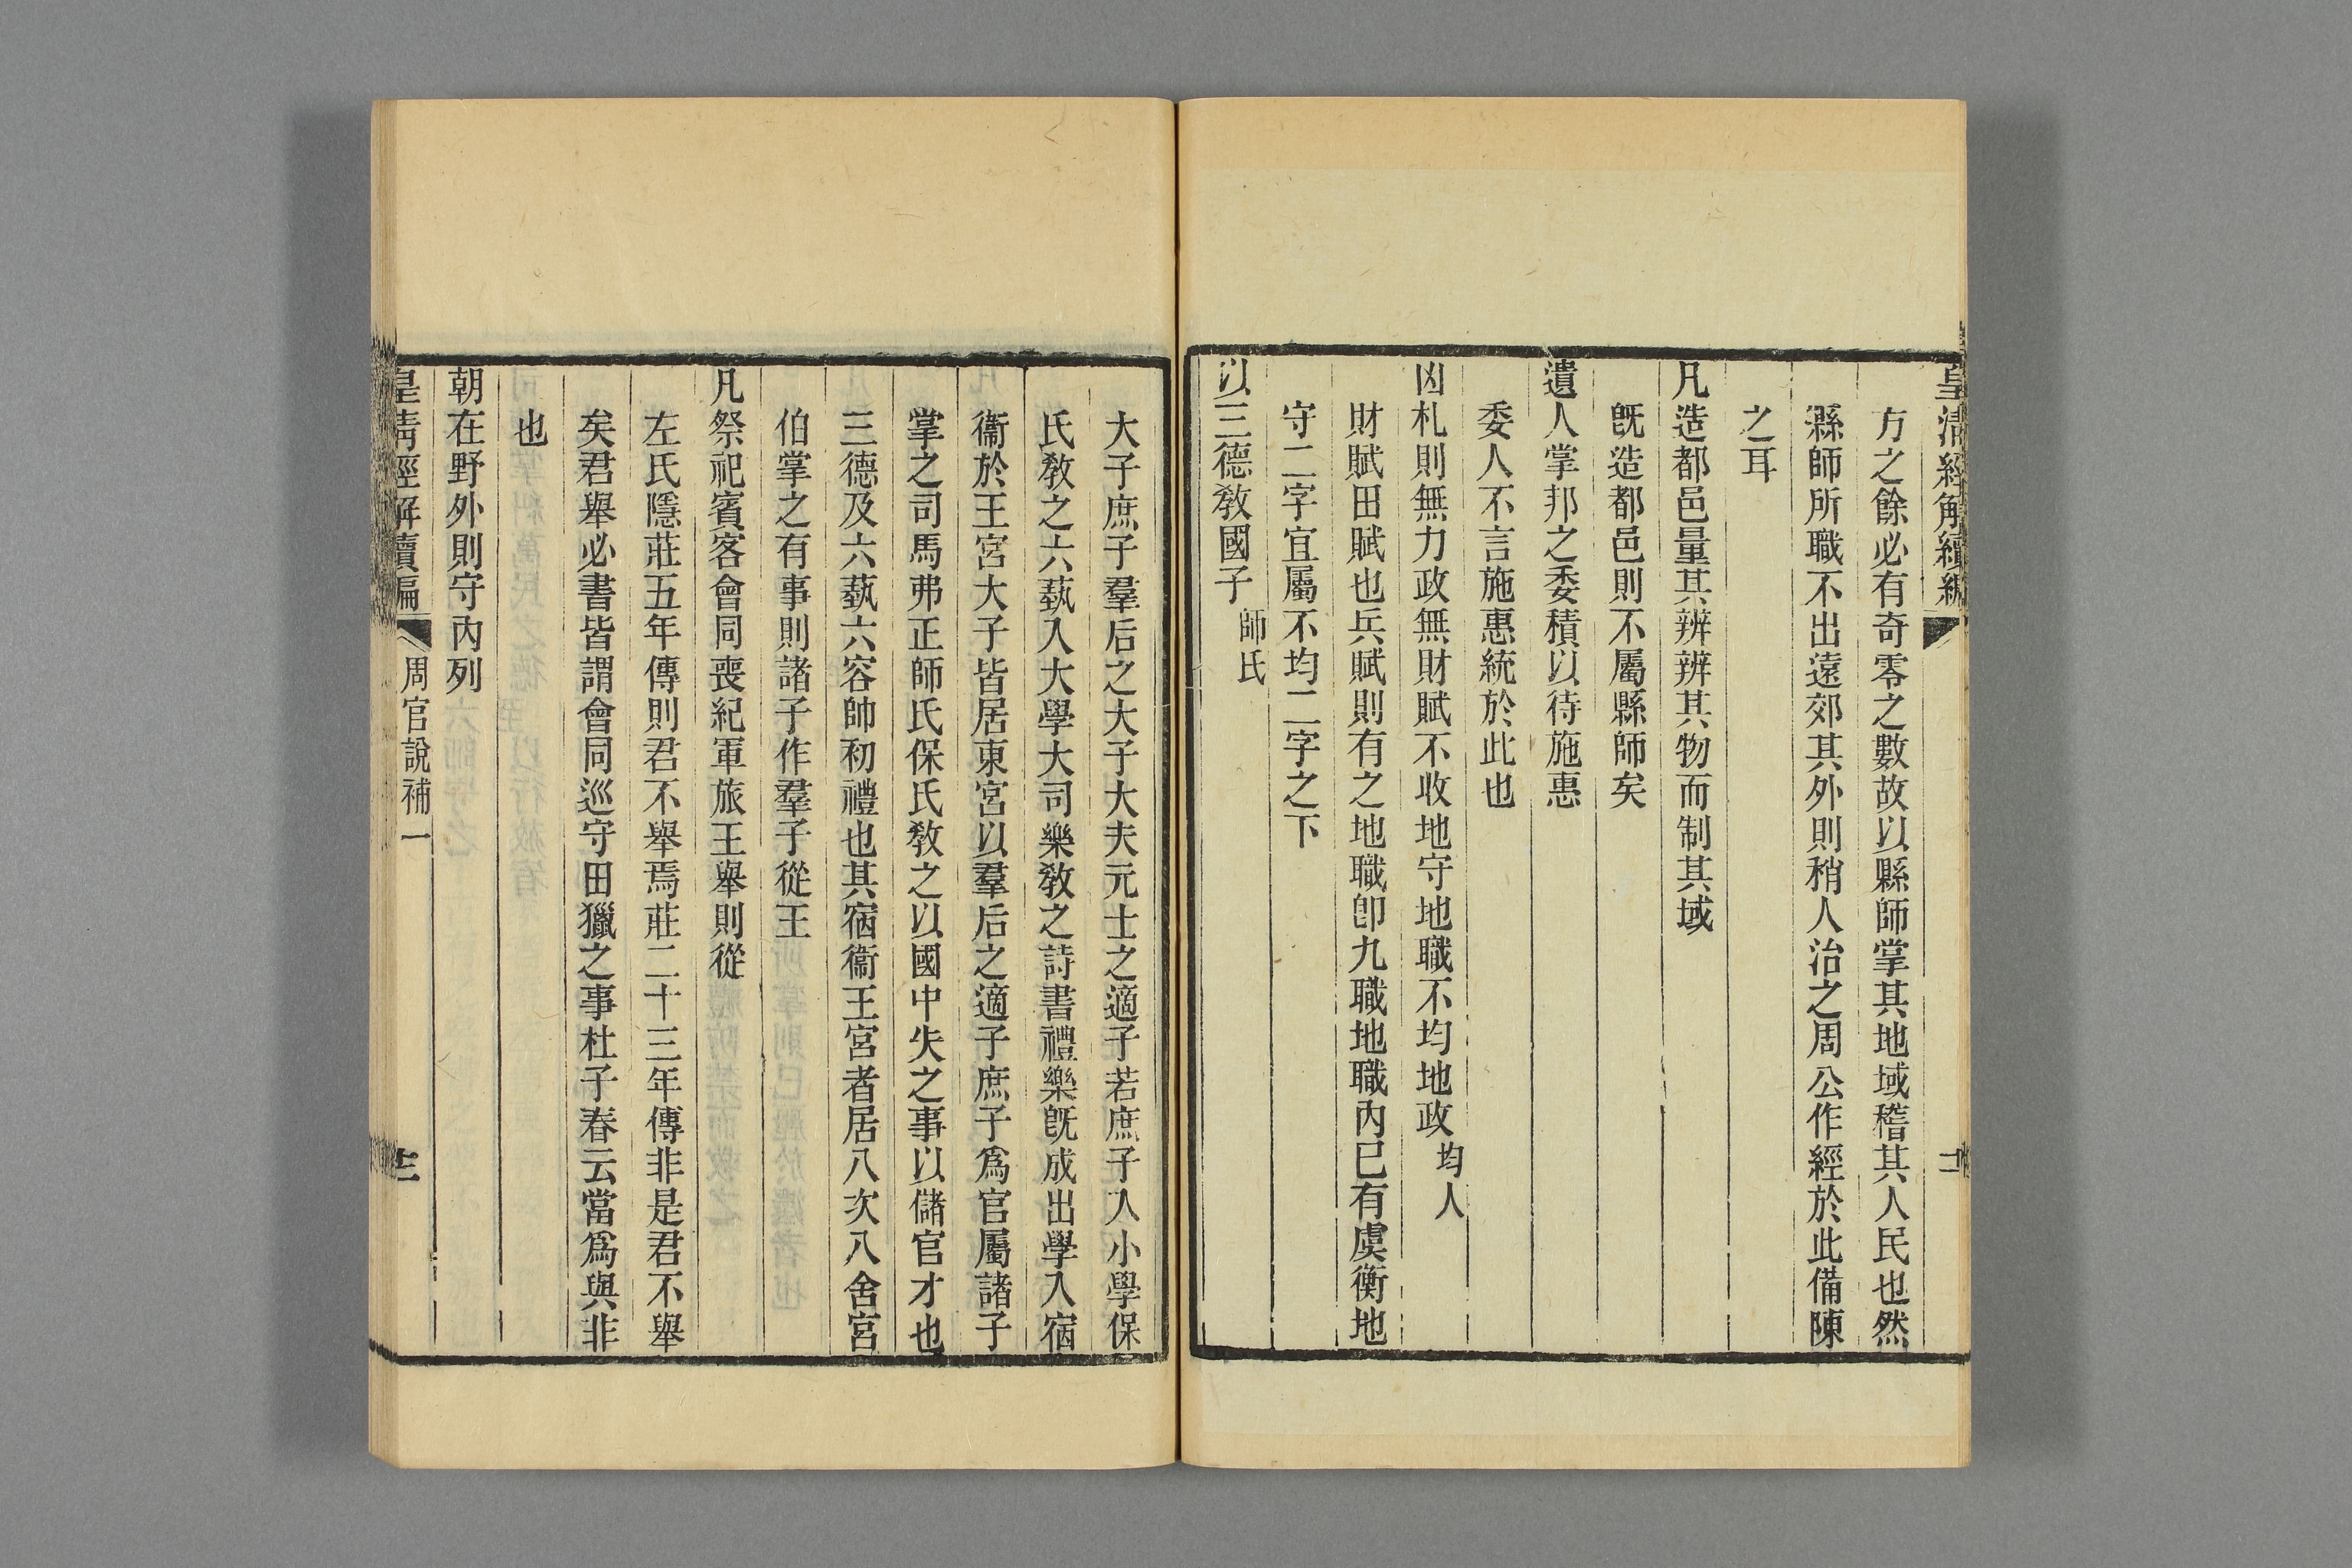 皇清經解續編
方之餘必有奇零之數故以縣師掌其地域稽其人民也然
縣師所職不出遠郊其外則稍人治之周公作經於此備陳
之耳
凡造都邑量其辨辨其物而制其域
旣造都邑則不屬縣師矣
遺人掌邦之委積以待施惠
委人不言施惠統於此也
凶札則無力政無財賦不收地守地職不均地政均人
財賦田賦也兵賦則有之地職卽九職地職內已有虞衡地
守二字宜屬不均二字之下
以三德敎國子師氏
大子庶子羣后之大子大夫元士之適子若庶子入小學保
氏敎之六藝入大學大司樂敎之詩書禮樂旣成出學入宿
衞於王宮大子皆居東宮以羣后之適子庶子爲官屬諸子
掌之司馬弗正師氏保氏敎之以國中失之事以儲官才也
三德及六藝六容帥初禮也其宿衞王宮者居八次八舍宮
伯掌之有事則諸子作羣子從王
凡祭祀賓客會同喪紀軍旅王舉則從
左氏隱莊五年傳則君不舉焉莊二十三年傳非是君不舉
矣君舉必書皆謂會同巡守田獵之事杜子春云當爲與非
也
朝在野外則守內列
皇清經解續編 周官說補一